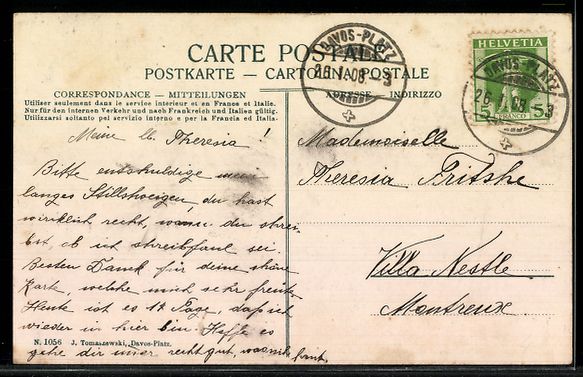 CARTE POSTALE
POSTKARTE — CARTOLINA POSTALE
CORRESPONDANCE — MITTEILUNGEN
ADRESSE — INDIRIZZO
Utiliser seulement dans le service interieur et en France et Italie.
Nur für den internen Verkehr und nach Frankreich und Italien gültig.
Utilizzarsi soltanto pel servizio interno e per la Francia ed Italia.
DAVOS-PLATZ
26.V.08 - 3
HELVETIA
5 5
FRANCO
DAVOS-PLATZ
26.V.08 3
Meine lb. Theresia!
Bitte entschuldige mein
langes Stillschweigen, du hast
wirklich recht, wenn du schrei-
bst, ob ich schreibfaul sei.
Besten Dank für deine schöne
Karte, welche mich sehr freute.
Heute ist es 14 Tage, daß ich
wieder in hier bin. Hoffe es
gehe dir immer recht gut, was
Mademoiselle
Theresia Fritshe
Villa Nestle
Montreux.
N. 1056 J. Tomaszewski, Davos-Platz.